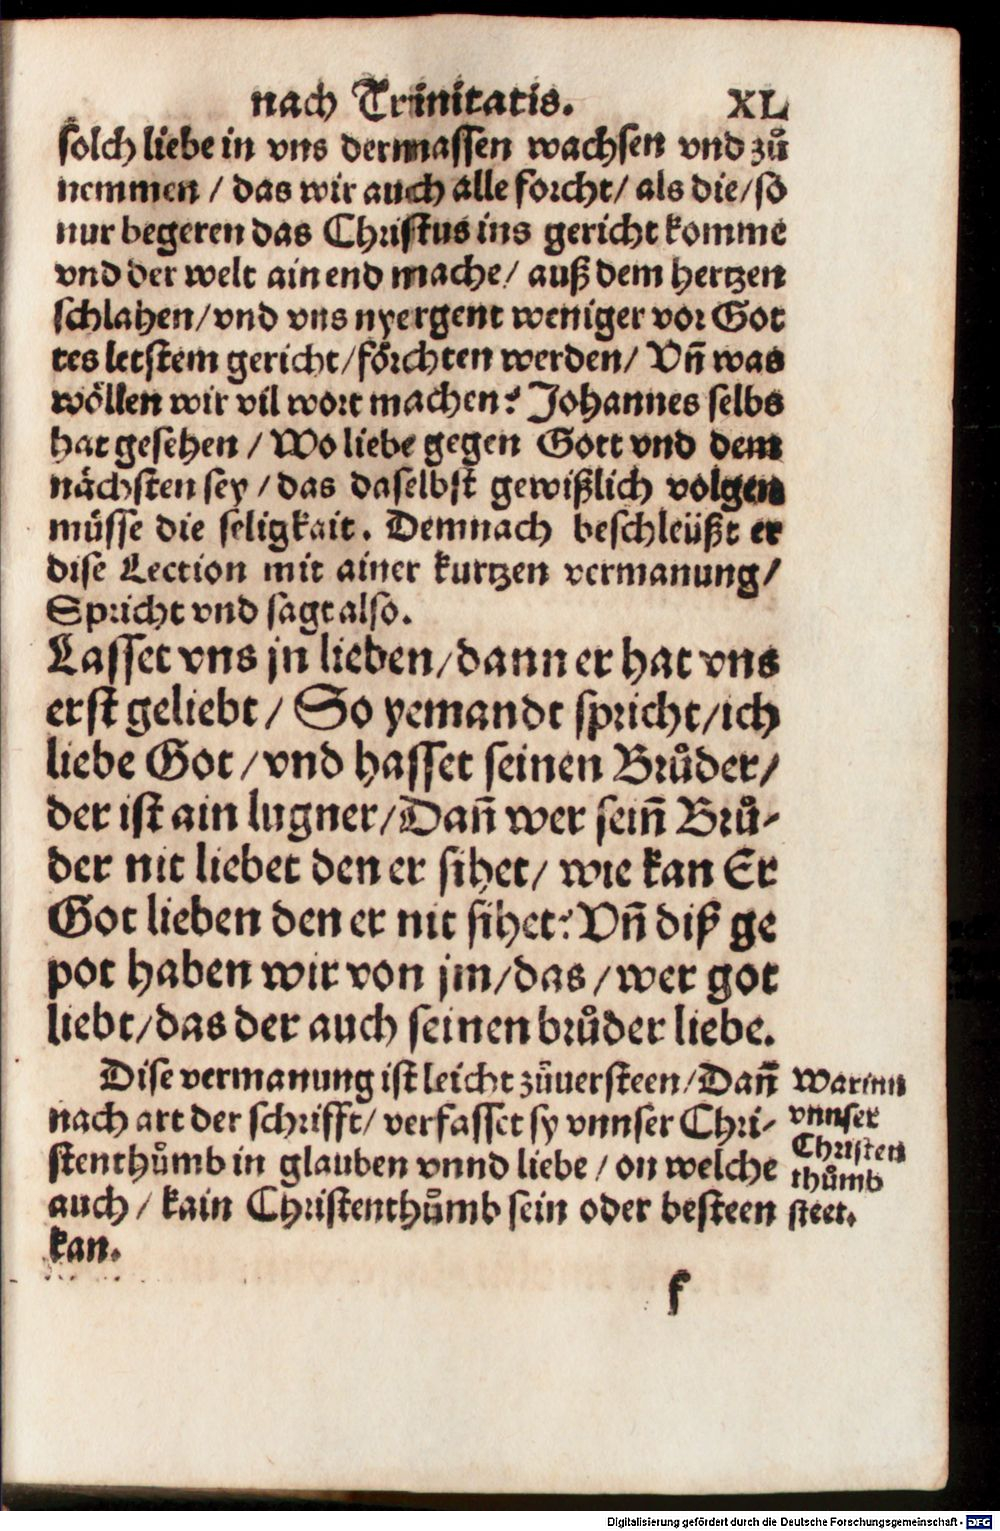 nach Trinitatis. XL
solch liebe in vns dermassen wachsen vnd zuͦ
nemmen / das wir auch alle forcht / als die / so
nur begeren das Christus ins gericht komme
vnd der welt ain end mache / auß dem hertzen
schlahen / vnd vns nyergent weniger vor Got
tes letstem gericht / förchten werden / Vñ was
wöllen wir vil wort machen? Johannes selbs
hat gesehen / Wo liebe gegen Gott vnd dem
nächsten sey / das daselbst gewißlich volgen
müsse die seligkait. Demnach beschleüßt er
dise Lection mit ainer kurtzen vermanung /
Spricht vnd sagt also.
Lasset vns jn lieben / dann er hat vns
erst geliebt / So yemandt spricht / ich
liebe Got / vnd hasset seinen Bruͦder /
der ist ain lugner / Dañ wer sein̄ Bruͦ-
der nit liebet den er sihet / wie kan Er
Got lieben den er nit sihet? Vñ diß ge
pot haben wir von jm / das / wer got
liebt / das der auch seinen bruͦder liebe.
Dise vermanung ist leicht zuͦuersteen / Dañ
nach art der schrifft / verfasset sy vnnser Chri-
stenthuͦmb in glauben vnnd liebe / on welche
auch / kain Christenthuͦmb sein oder besteen
kan.
Warinn
vnnser
Christen
thuͦmb
steet.
f
Digitalisierung gefördert durch die Deutsche Forschungsgemeinschaft - DFG